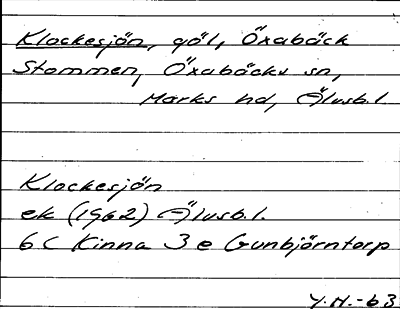 Klockesjön, göl, Öxabäck
Stommen, Öxabäcks sn,
Marks hd, Älvsb.l.
Klockesjön
ek (1962) Älvsb.l.
6C Kinna 3 e Gunbjörntorp
Y.H.-63